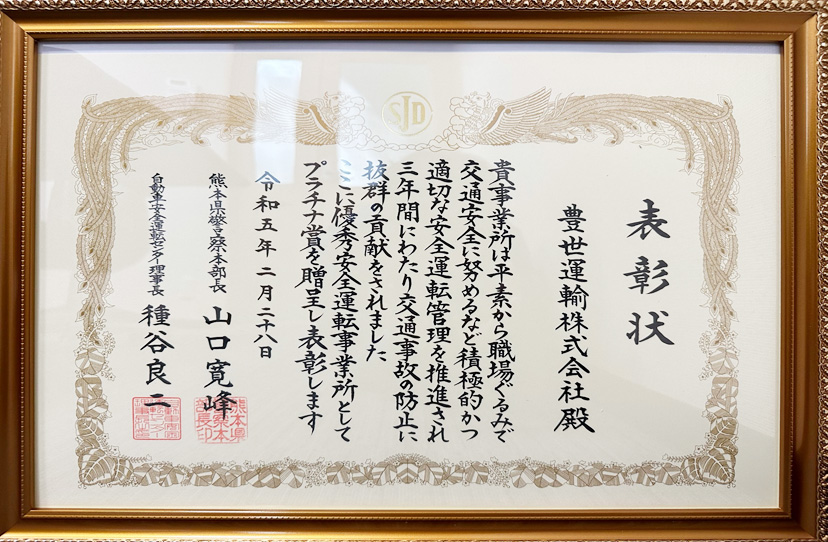 SJD
表彰状
豊世運輸株式会社殿
貴事業所は平素から職場ぐるみで
交通安全に努めるなど積極的かつ
適切な安全運転管理を推進され
三年間にわたり交通事故の防止に
抜群の貢献をされました
ここに優秀安全運転事業所として
プラチナ賞を贈呈し表彰します
令和五年二月二十八日
熊本県警察本部長 山口寛峰
熊本県警察本部長印
自動車安全運転センター理事長 種谷良二